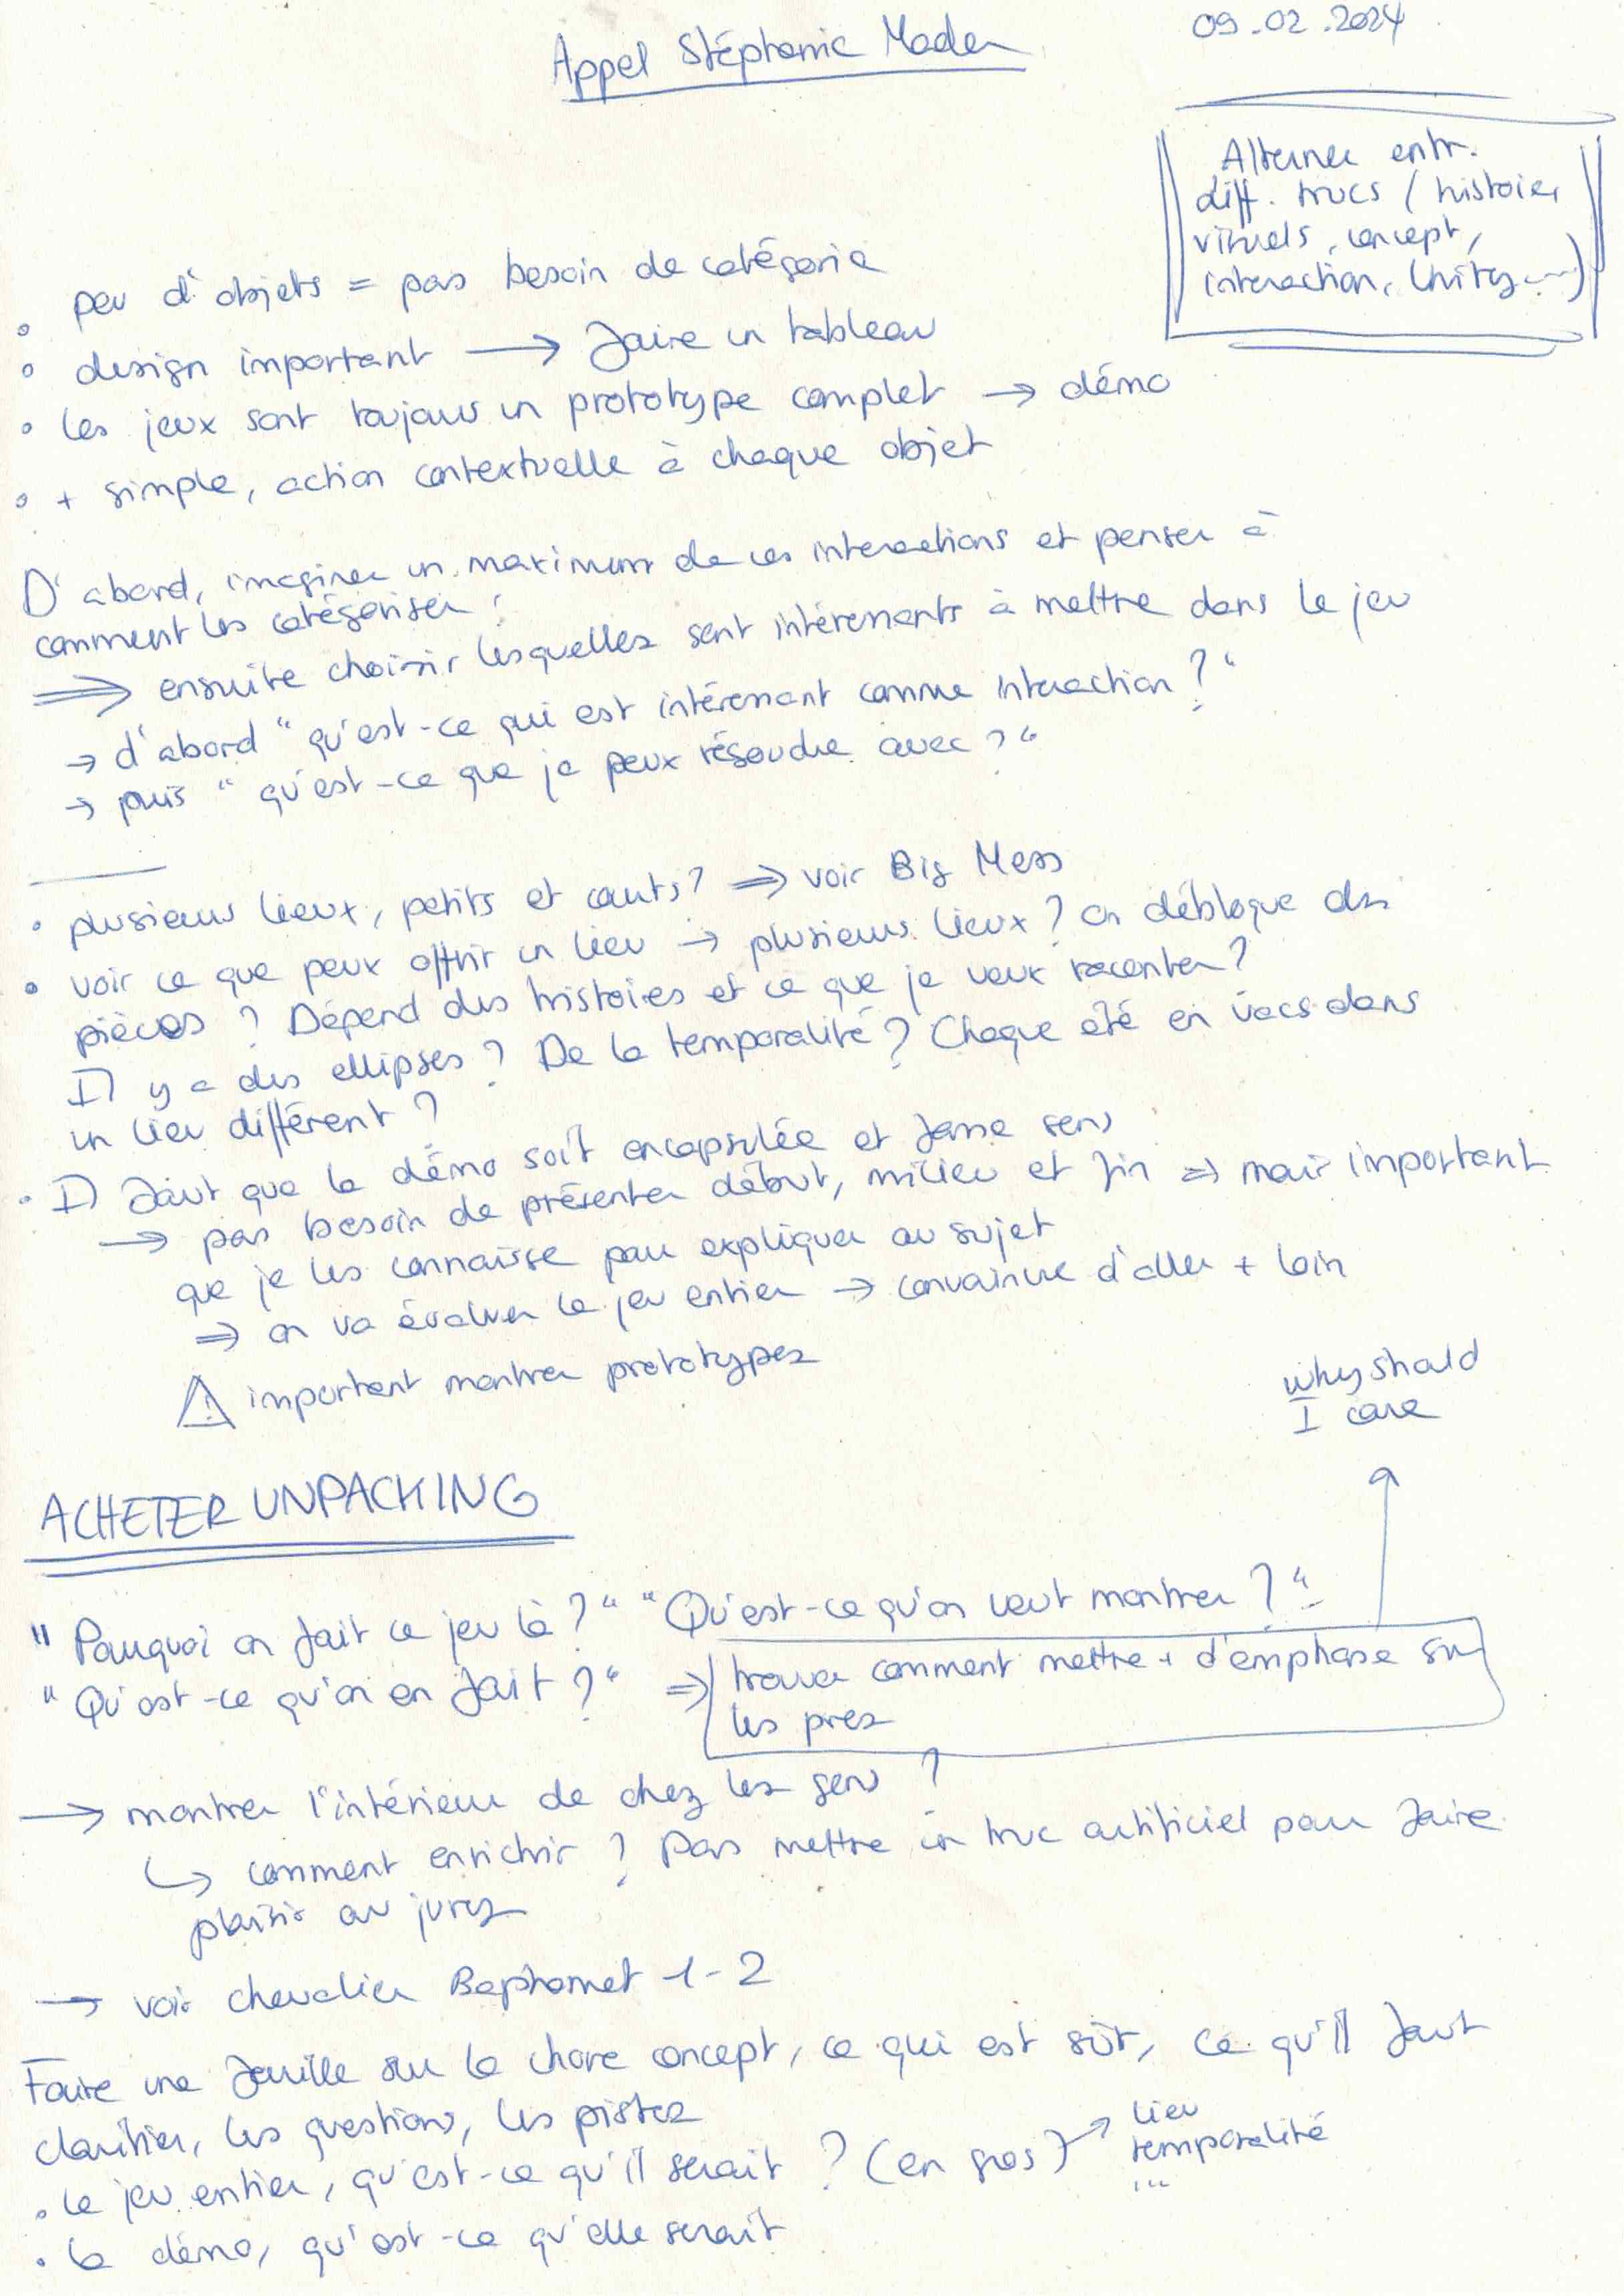 Appel Stéphanie Mader
09.02.2024
Alterner entr.
diff. trucs (histoire,
visuels, concept,
interaction, Unity...)
• peu d'objets = pas besoin de catégorie
• design important → faire un tableau
• les jeux sont toujours un prototype complet → démo
• + simple, action contextuelle à chaque objet
D'abord, imaginer un maximum de ces interactions et penser à
comment les catégoriser !
⇒ ensuite choisir lesquelles sont intéressants à mettre dans le jeu
→ d'abord "qu'est-ce qui est intéressant comme interaction ?"
→ puis "qu'est-ce que je peux résoudre avec ?"
• plusieurs lieux, petits et courts? ⇒ voir Big Mess
• voir ce que peux offrir un lieu → plusieurs lieux ? On débloque des
pièces ? Dépend des histoires et ce que je veux raconter ?
Il y a des ellipses ? De la temporalité ? Chaque été en vacs dans
un lieu différent ?
• Il faut que la démo soit encapsulée et fasse sens
→ pas besoin de présenter début, milieu et fin ⇒ mais important
que je les connaisse pour expliquer au sujet
⇒ on va évaluer le jeu entier → convaincre d'aller + loin
⚠ important montrer prototypes
why should
I care
ACHETER UNPACKING
"Pourquoi on fait ce jeu là ?" "Qu'est-ce qu'on veut montrer ?"
"Qu'est-ce qu'on en fait ?" ⇒ trouver comment mettre + d'emphase sur
les prez
→ montrer l'intérieur de chez les gens ?
↳ comment enrichir ? Pas mettre un truc artificiel pour faire
plaisir au jury
→ voir chevalier Baphomet 1-2
Faire une feuille sur la chose concept, ce qui est sûr, ce qu'il faut
clarifier, les questions, les pistes
• le jeu entier, qu'est-ce qu'il serait ? (en gros) ↗ lieu
temporalité
...
• la démo, qu'est-ce qu'elle serait